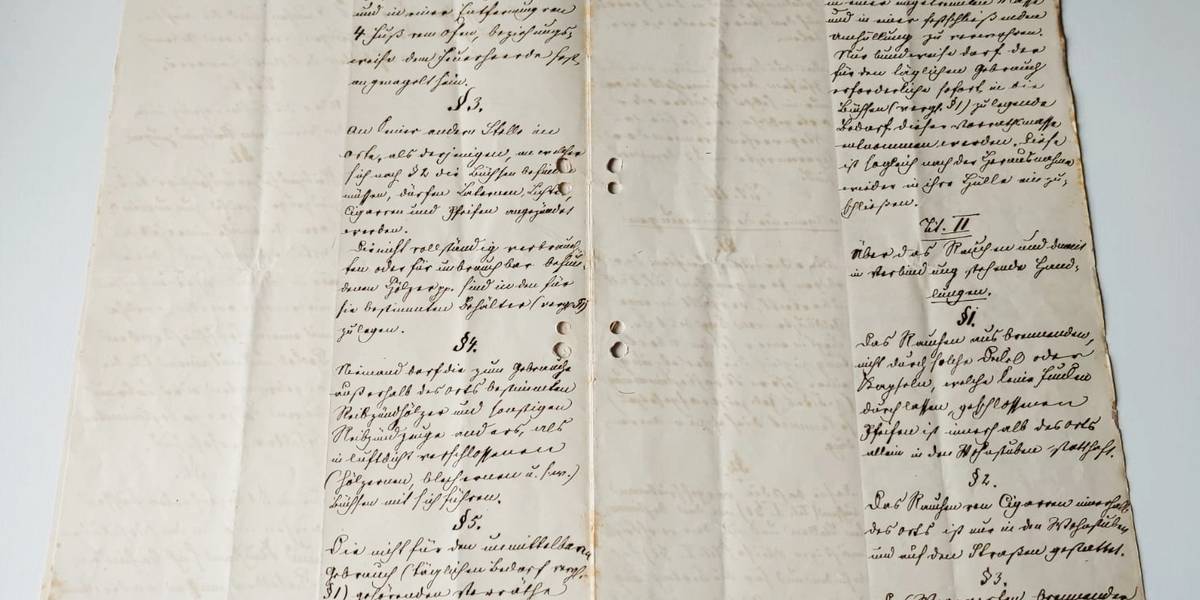 und in einer Entfernung von
4. Fuß vom Ofen, beziehungs-
weise dem Feuerheerde fest
angenagelt sein.
§ 3.
An keiner andern Stelle im
Orte, als derjenigen, an welcher
sich nach § 2 die Büchsen befinden
müssen, dürfen Laternen, Lichte,
Cigarren und Pfeifen angezündet
werden.
Die nicht vollständig verbrauch-
ten oder für unbrauchbar befun-
denen Hölzer pp. sind in den für
sie bestimmten Behälter (vergl. § 1)
zu legen.
§ 4.
Niemand darf die zum Gebrauche
außerhalb des Orts bestimmten
Reibzündhölzer und sonstigen
Reibzündzeuge anders, als
in luftdicht verschlossenen
(hölzernen, blechernen u. s. w.)
Büchsen mit sich führen.
§ 5.
Die nicht für den unmittelbaren
Gebrauch (täglichen Bedarf vergl.
§ 1) gehörenden Vorräthe
und in einer festschließenden
Umhüllung zu verwahren.
Nur bundweise darf der
für den täglichen Gebrauch
erforderliche sofort in die
Büchsen (vergl. § 1) zu legende
Bedarf dieser Vorrathsmasse
entnommen werden. Diese
ist sogleich nach der Herausnahme
wieder in ihre Hülle einzu-
schließen.
Tit. II
Über das Rauchen und damit
in Verbindung stehende Hand-
lungen.
§ 1.
Das Rauchen aus brennenden,
nicht durch solche Deckel oder
Kapseln, welche keine Funken
durchlassen, geschlossenen
Pfeifen ist innerhalb des Orts
allein in den Wohnstuben statthaft.
§ 2.
Das Rauchen von Cigarren innerhalb
des Orts ist nur in den Wohnstuben
und auf den Straßen gestattet.
§ 3.
brennender